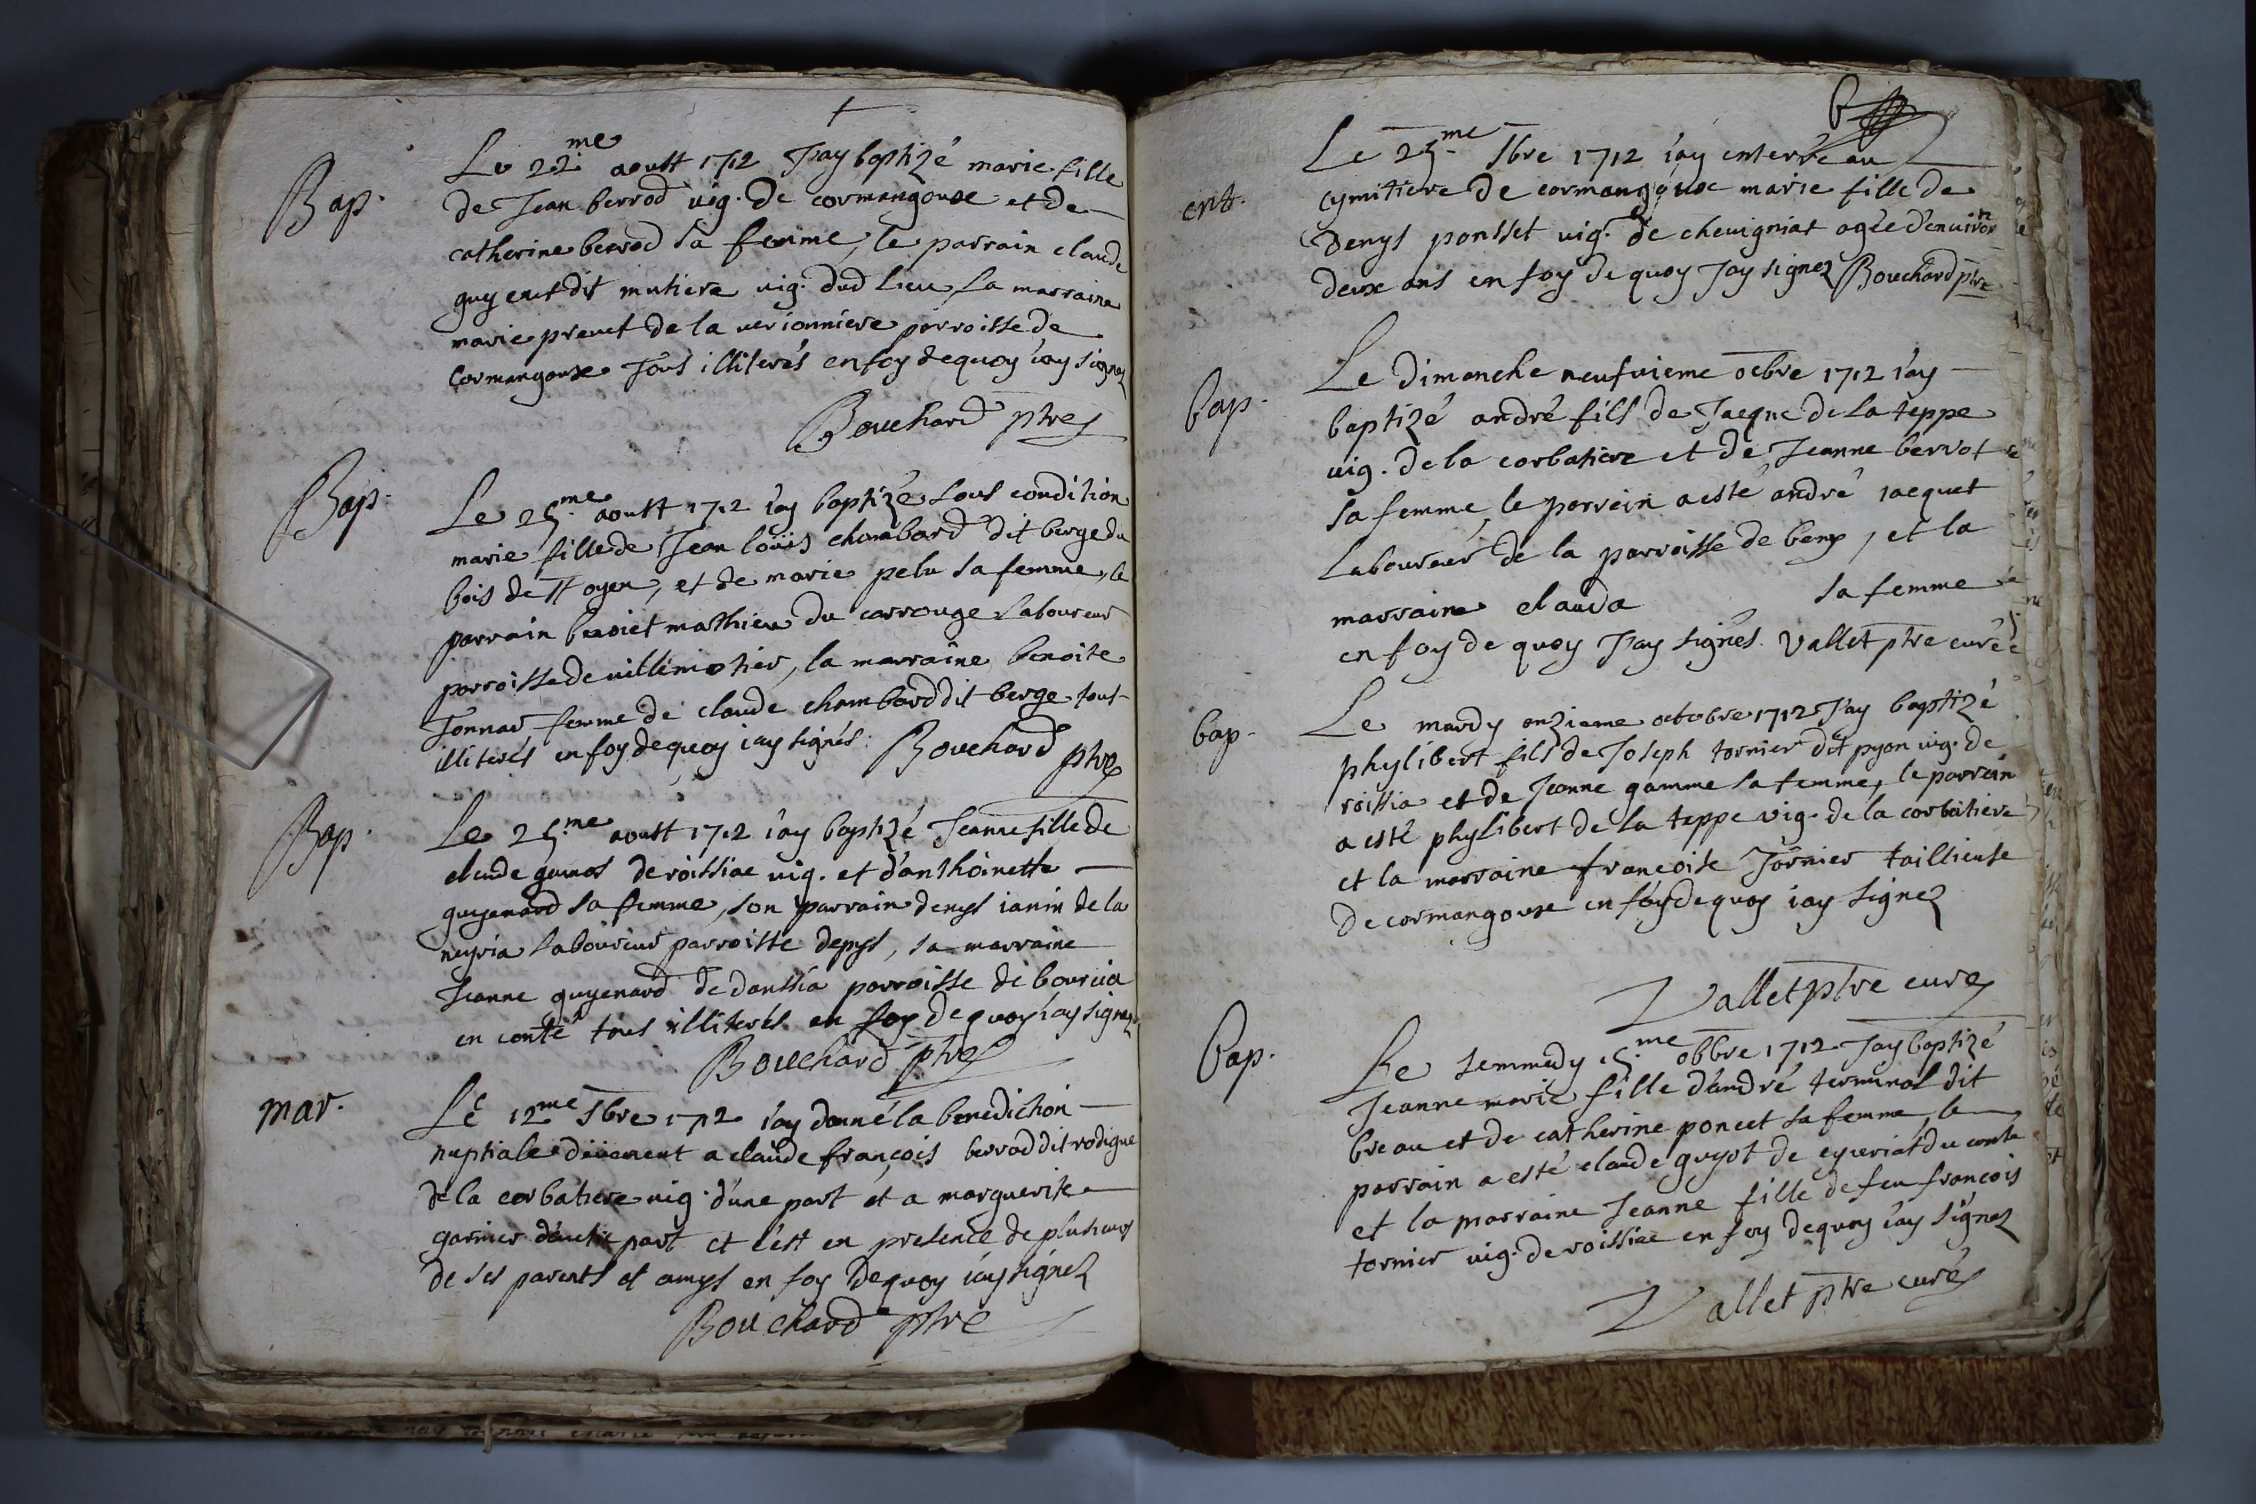 Bap.
Le 22.me aoust 1712 J'ay baptizé marie fille
de Jean berrod vig. de cormangoux et de
catherine berrod sa femme, le parrain claude
guyenet dit mutiere vig. dud lieu la marraine
marie prevet de la verionniere parroisse de
cormangoux Tous illiterés en foy de quoy i'ay signez
Bouchard ptre
Bap.
Le 25.me aoust 1712 i'ay baptizé sous condition
marie fille de Jean loüis chambard dit berge du
bois de et de marie pelu sa femme, le
parrain benoict mathieu du carrouge laboureur
parroisse de villemotier, la marraine benoite
Tonnar femme de claude chambard dit berge tous
illiterés en foy de quoy i'ay signés. Bouchard ptre
Bap.
Le 25.me aoust 1712 i'ay baptizé Jeanne fille de
claude de roissiac vig. et d'anthoinette
guyenard sa femme, son parrain denys ianin de la
neyria laboureur parroisse depys, sa marraine
Jeanne guyenard de danssia parroisse de bourcia
en conté tous illiterés en foy de quoy i'ay signez
Bouchard ptre
mar.
Le 12me 7bre 1712 i'ay donné la benediction
nuptiale düement a claude françois berrod dit rodigue
de la corbatiere vig. d'une part et a marguerite
garnier d'autre part et c'est en presence de plusieurs
de ses parents et amys en foy de quoy i'ay signez
Bouchard ptre
ent.
Le 25.me 7bre 1712 i'ay enterré au
cymitiere de cormangoux marie fille de
denys ponsset vig. de chevigniat agée d'environ
deux ans en foy de quoy J'ay signez Bouchard ptre
bap.
Le dimanche neufvieme octbre 1712 i'ay
baptizé andré fils de Jacque de la teppe
vig. de la corbatiere et de Jeanne berrot
sa femme, le parrein a esté andré iacquet
laboureur de la parroisse de beny, et la
marraine clauda sa femme
en foy de quoy J'ay signés. Vallet ptre curé
bap.
Le mardy onzieme octobre 1712 J'ay baptizé
phylibert fils de Joseph tornier dit pyon vig. de
roissia et de Jeanne gamme sa femme, le parrein
a esté phylibert de la teppe vig. de la corbatiere
et la marraine francoise Tornier taillieuse
de cormangoux en foy de quoy i'ay signez
Vallet ptre curé
bap.
Le semmedy 15.me obbre 1712 J'ay baptizé
Jeanne marie fille d'andré terminal dit
breau et de catherine poncet sa femme, le
parrain a esté claude guyot de eyveriat du conte
et la marraine Jeanne fille de feu francois
tornier vig. de roissiac en foy de quoy i'ay signez
Vallet ptre curé